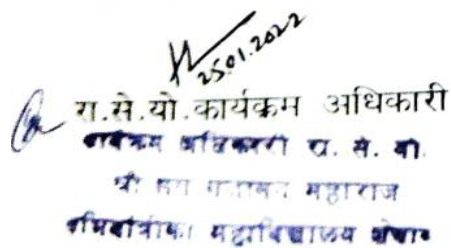 25.01.2022
रा.से.यो.कार्यक्रम अधिकारी
कार्यक्रम अधिकारी रा. से. यो.
श्री संत गजानन महाराज
अभियांत्रिकी महाविद्यालय शेगाव